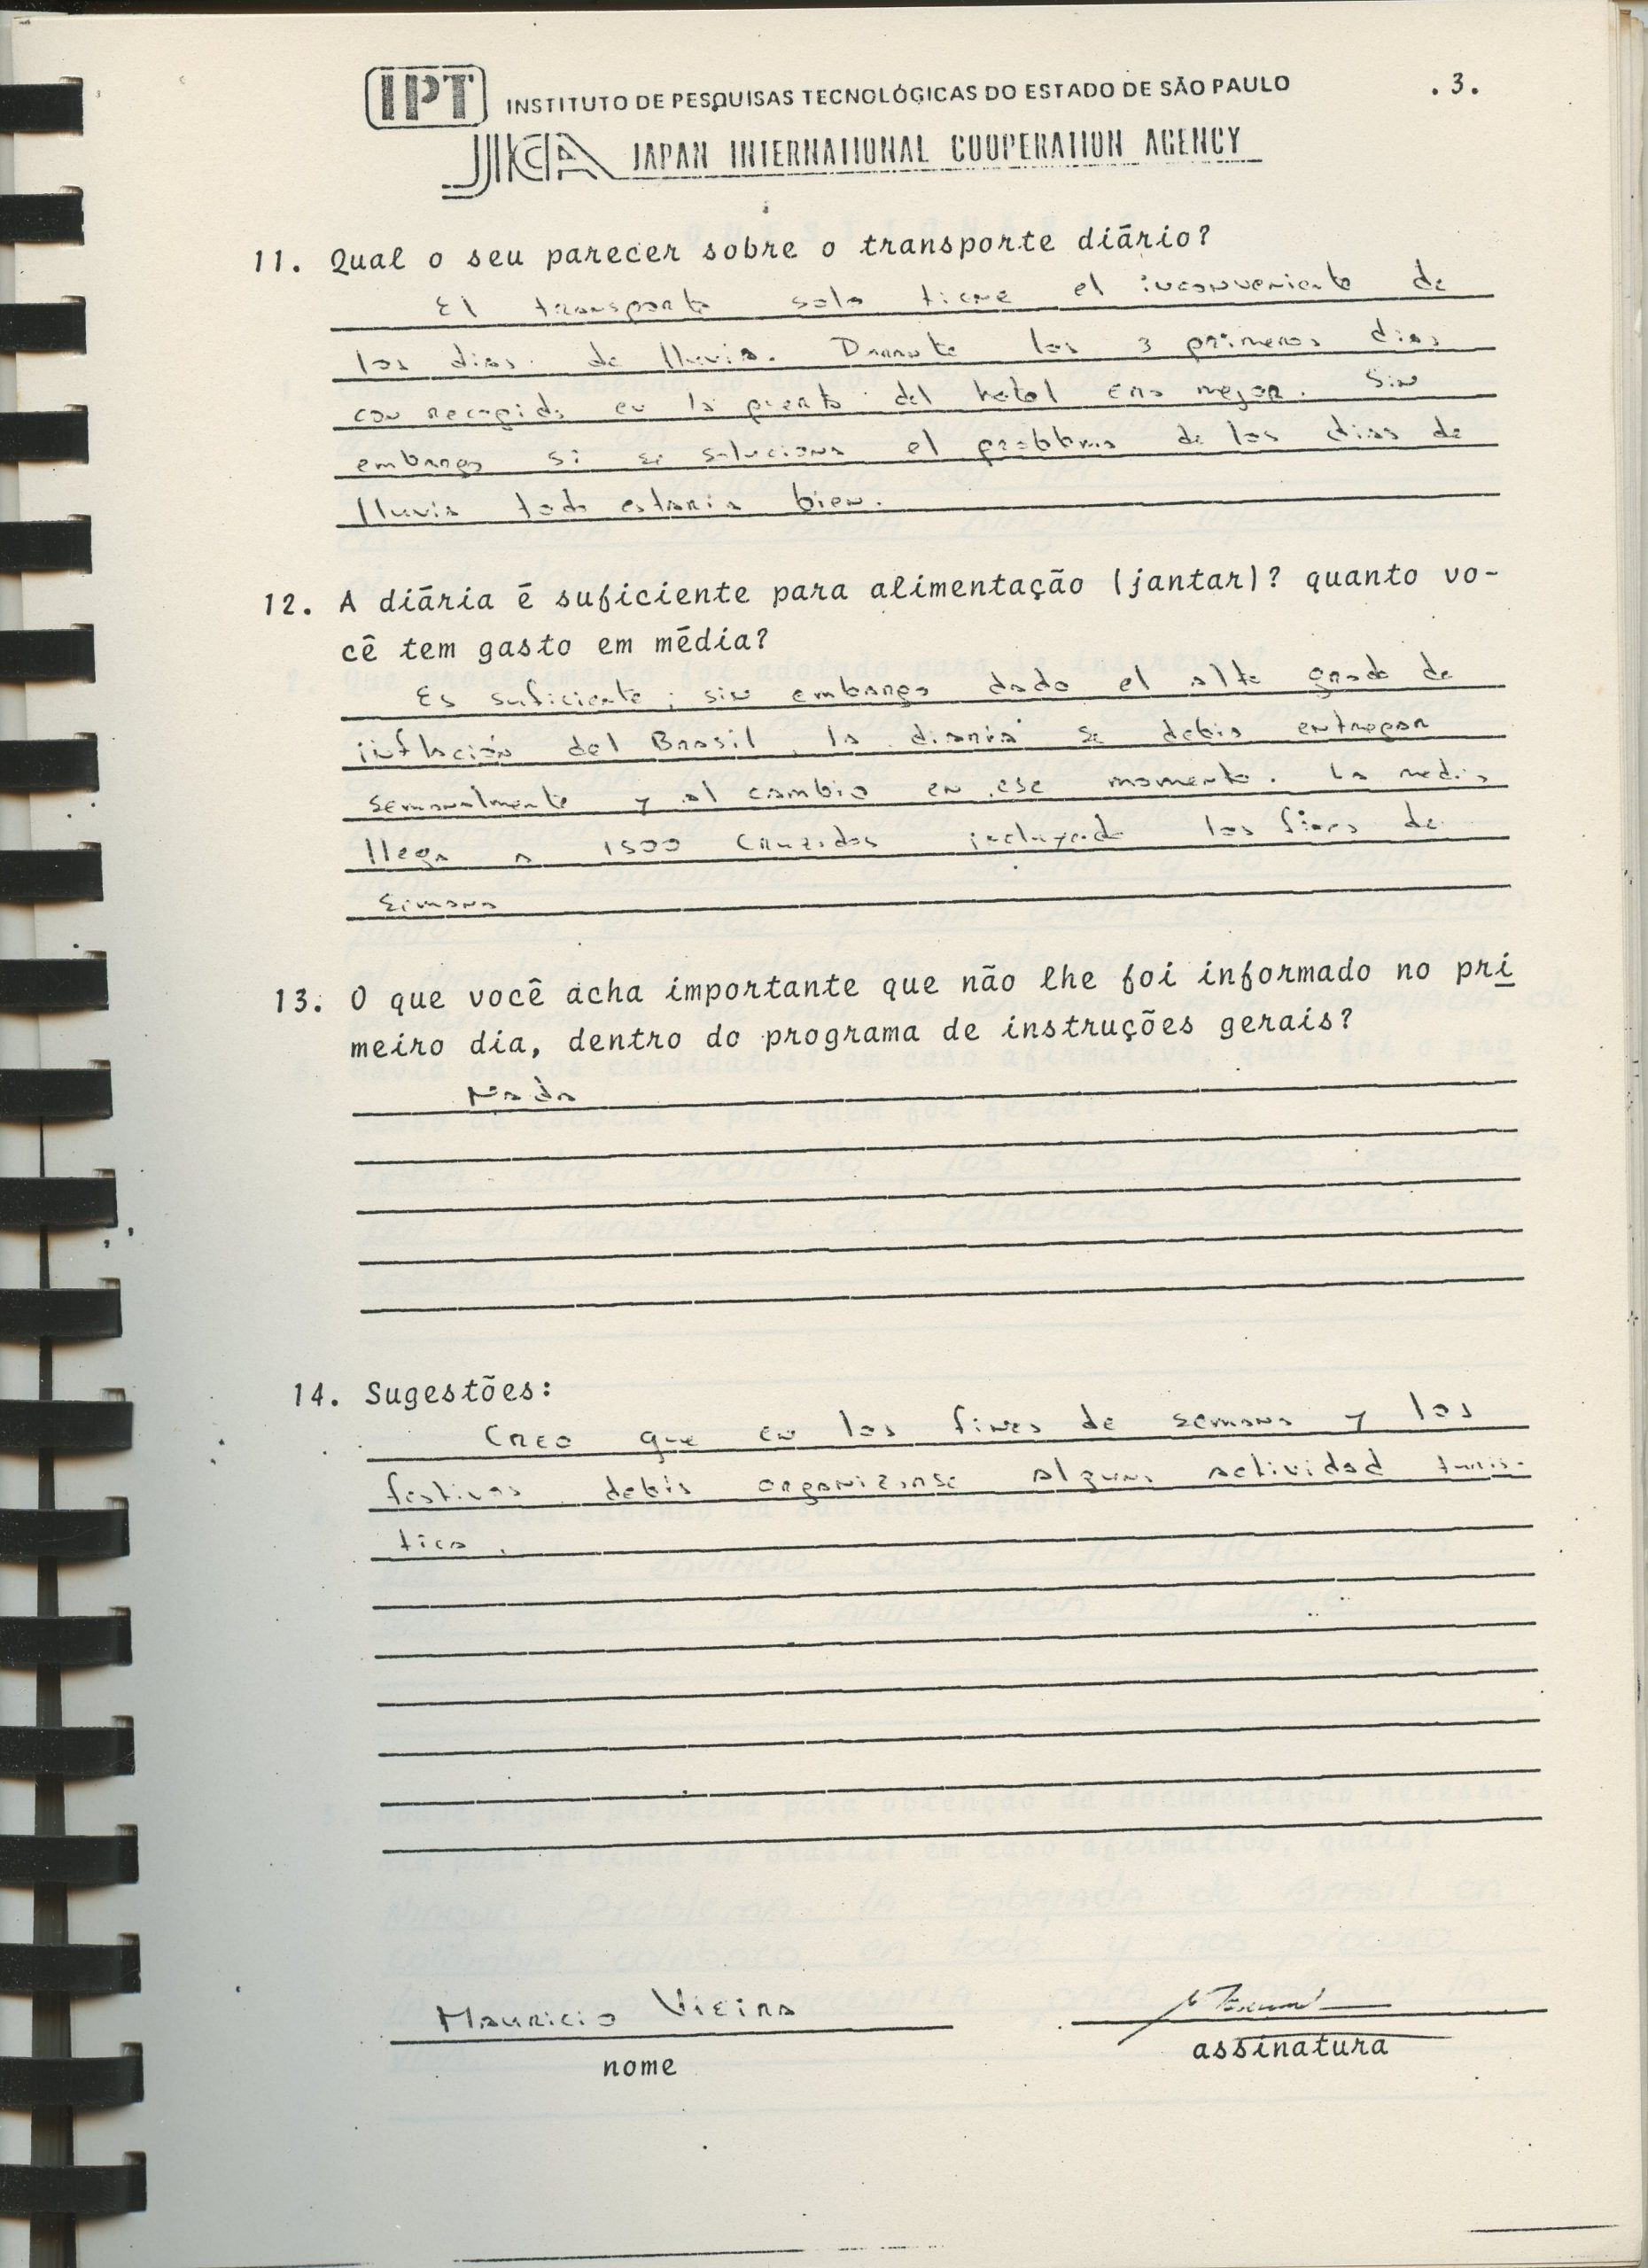 IPT INSTITUTO DE PESQUISAS TECNOLÓGICAS DO ESTADO DE SÃO PAULO .3.
JICA JAPAN INTERNATIONAL COOPERATION AGENCY
11. Qual o seu parecer sobre o transporte diário?
El transporte solo tiene el inconveniente de
los dias de lluvia. Durante los 3 primeros dias
con recogida en la puerta del hotel era mejor. Sin
embargo si se soluciona el problema de los dias de
lluvia todo estaria bien.
12. A diária é suficiente para alimentação (jantar)? quanto vo-
cê tem gasto em média?
Es suficiente; sin embargo dado el alto grado de
inflación del Brasil, la diaria se debia entregar
semanalmente y al cambio en ese momento. La media
llega a 1500 Cruzados incluyendo los fines de
semana
13. O que você acha importante que não lhe foi informado no pri
meiro dia, dentro do programa de instruções gerais?
Nada
14. Sugestões:
Creo que en los fines de semana y los
festivos debia organizarse alguna actividad turis-
tica.
Mauricio Vieira
nome assinatura